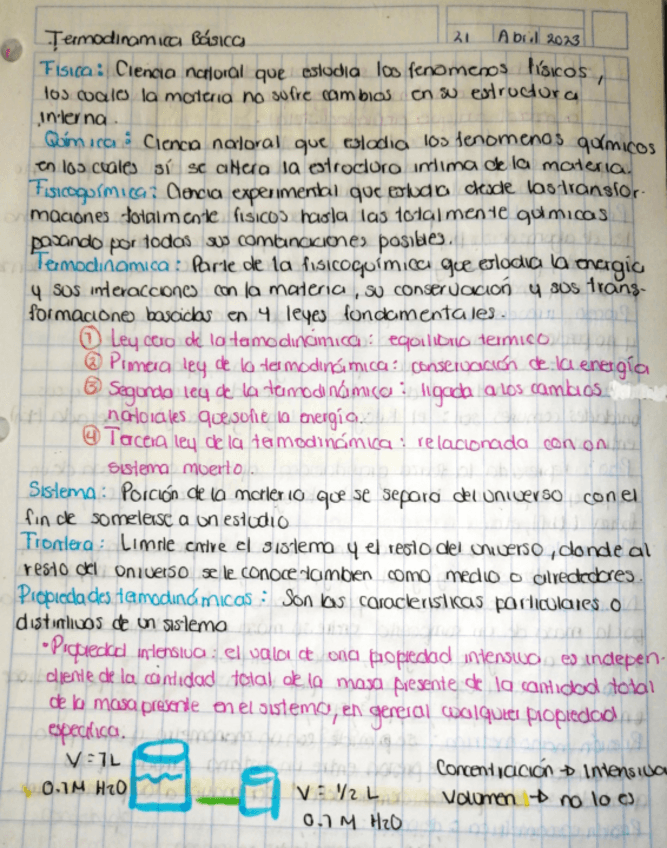 Termodinamica Básica 21 Abril 2023
Fisica: Ciencia natural que estudia los fenomenos físicos,
los cuales la materia no sufre cambios en su estructura
interna.
Química: Ciencia natural que estudia los fenomenos químicos
en los cuales sí se altera la estructura intima de la materia.
Fisicoquímica: Ciencia experimental que estudia desde las transfor-
maciones totalmente fisicos hasta las totalmente químicas
pasando por todas sus combinaciones posibles.
Termodinamica: Parte de la fisicoquímica que estudia la energia
y sus interacciones con la materia, su conservación y sus trans-
formaciones basadas en 4 leyes fundamentales.
① Ley cero de la termodinámica: equilibrio termico
② Primera ley de la termodinámica: conservación de la energía
③ Segunda ley de la termodinámica: ligada a los cambios
naturales que sufre la energía.
④ Tercera ley de la termodinámica: relacionada con un
sistema muerto.
Sistema: Porción de la materia que se separa del universo con el
fin de someterse a un estudio
Frontera: Limite entre el sistema y el resto del universo, donde al
resto del universo se le conoce tambien como medio o alrededores.
Propiedades termodinámicas: Son las caracteristicas particulares o
distintivas de un sistema
•Propiedad intensiva: el valor de una propiedad intensiva es indepen-
diente de la cantidad total de la masa presente de la cantidad total
de la masa presente en el sistema, en general cualquier propiedad
especifica.
V=1L
0.1M H2O
V=1/2 L
0.1 M H2O
Concentración → Intensiva
Volumen → no lo es